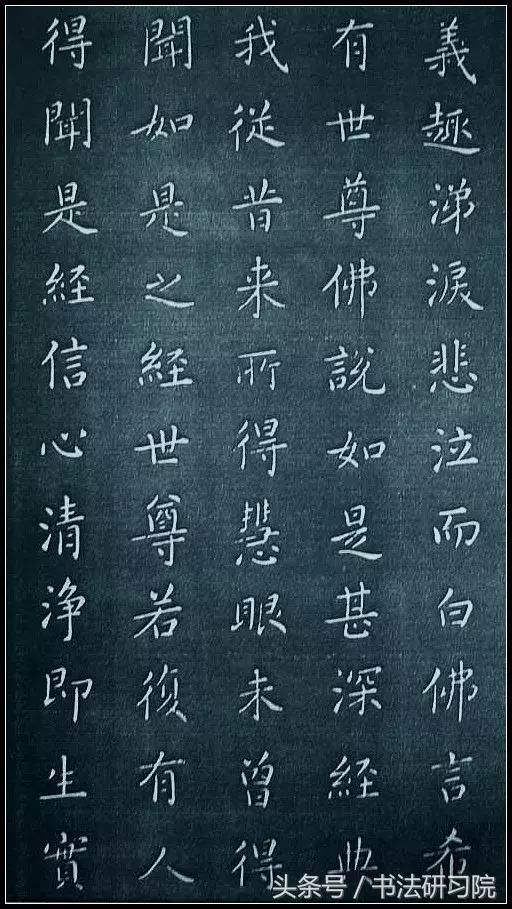 義趣涕淚悲泣而白佛言希
有世尊佛說如是甚深經典
我從昔来所得慧眼未曾得
聞如是之経世尊若復有人
得聞是経信心清浄即生實
头条号/书法研习院